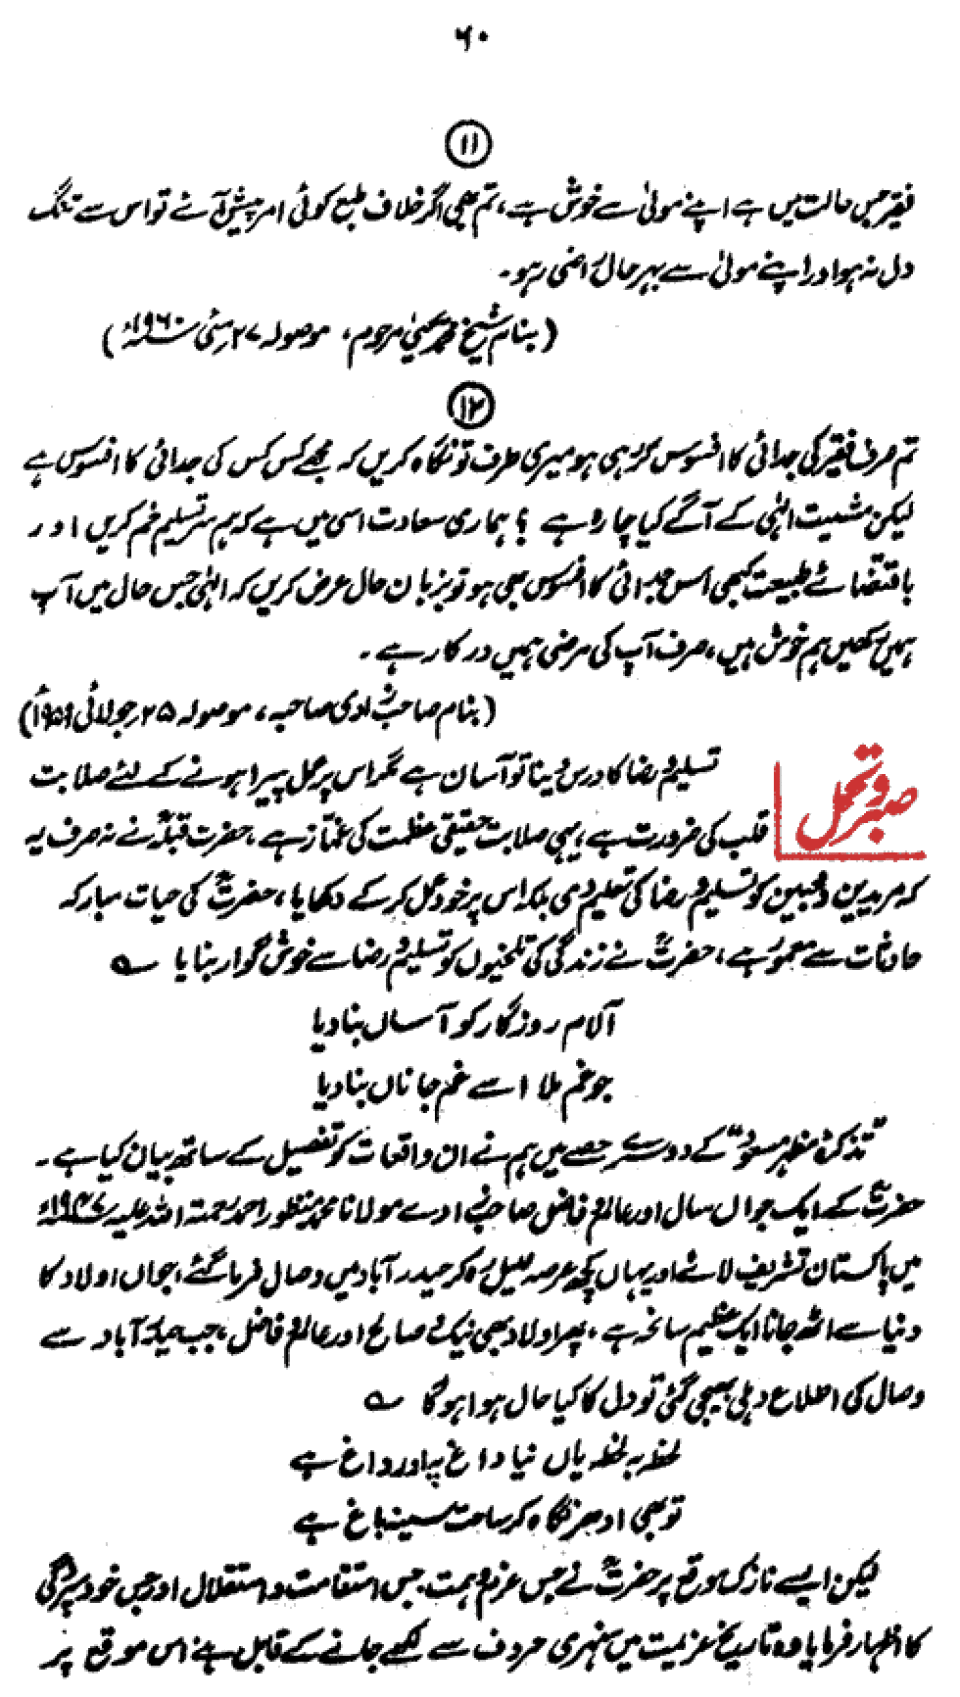 ۶۰
۱۱
فقیر جس حالت میں ہے اپنے مولیٰ سے خوش ہے، تم بھی اگر خلاف طبع کوئی امر پیش آئے تو اس سے تنگ
دل نہ ہو اور اپنے مولیٰ سے بہر حال راضی رہو۔
(بنام شیخ محمد یحییٰ مرحوم، موصولہ ۲۷ مئی ۱۹۶۰ء)
۱۲
تم صرف فقیر کی جدائی کا افسوس کر رہی ہو میری طرف تو نگاہ کریں کہ مجھے کس کس کی جدائی کا افسوس ہے
لیکن مشیت الٰہی کے آگے کیا چارہ ہے ؟ ہماری سعادت اسی میں ہے کہ ہم سر تسلیم خم کریں اور
باقتضائے طبیعت کبھی اس جدائی کا افسوس بھی ہو تو بزبان حال عرض کریں کہ الٰہی جس حال میں آپ
ہمیں رکھیں ہم خوش ہیں، صرف آپ کی مرضی ہمیں درکار ہے۔
(بنام صاحبزادی صاحبہ، موصولہ ۲۵ جولائی ۱۹۵۹ء)
صبر و تحمل
تسلیم و رضا کا درس دینا تو آسان ہے مگر اس پر عمل پیرا ہونے کے لئے صلابت
قلب کی ضرورت ہے، یہی صلابت حقیقی عظمت کی غماز ہے، حضرت قبلہؒ نے نہ صرف یہ
کہ مریدین و محبین کو تسلیم و رضا کی تعلیم دی بلکہ اس پر خود عمل کر کے دکھایا، حضرتؒ کی حیات مبارکہ
حادثات سے معمور ہے، حضرتؒ نے زندگی کی تلخیوں کو تسلیم و رضا سے خوش گوار بنایا ؎
آلام روزگار کو آساں بنا دیا
جو غم ملا اسے غم جاناں بنا دیا
"تذکرہ مظہر مسعود" کے دوسرے حصے میں ہم نے ان واقعات کو تفصیل کے ساتھ بیان کیا ہے۔
حضرتؒ کے ایک جواں سال اور عالم و فاضل صاحبزادے مولانا محمد منظور احمد رحمتہ اللہ علیہ ۱۹۴۷ء
میں پاکستان تشریف لائے اور یہاں کچھ عرصہ علیل رہ کر حیدرآباد میں وصال فرما گئے، جواں اولاد کا
دنیا سے اٹھ جانا ایک عظیم سانحہ ہے، پھر اولاد بھی نیک و صالح اور عالم و فاضل، جب حیدرآباد سے
وصال کی اطلاع دہلی بھیجی گئی تو دل کا کیا حال ہوا ہوگا ؎
لحظہ بہ لحظہ یاں نیا داغ پہ اور داغ ہے
تو بھی ادھر نگاہ کر ساحت سینہ باغ ہے
لیکن ایسے نازک موقع پر حضرتؒ نے جس عزم و ہمت، جس استقامت و استقلال اور جس خود سپردگی
کا اظہار فرمایا وہ تاریخ عزیمت میں سنہری حروف سے لکھے جانے کے قابل ہے، اس موقع پر